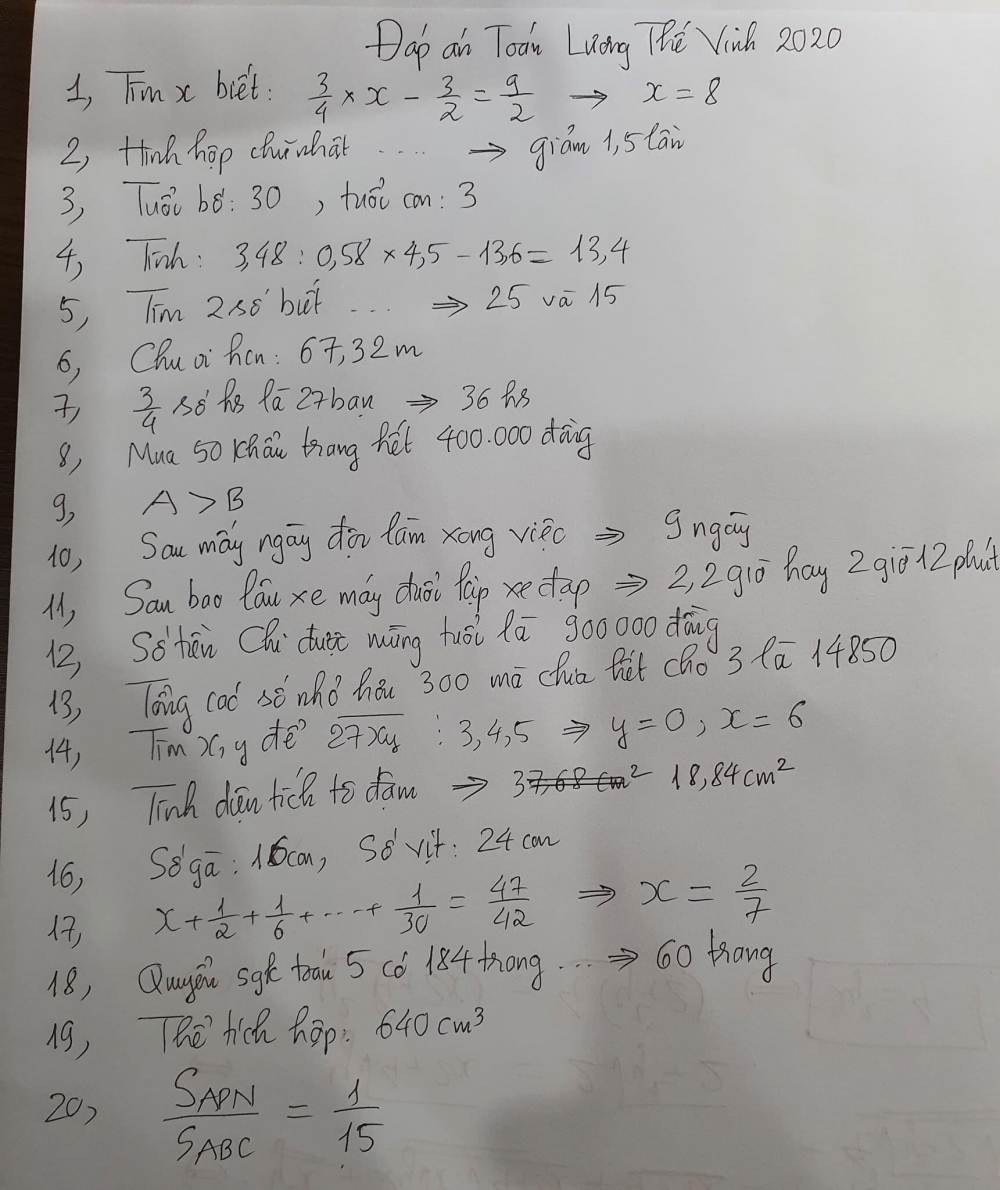 Đáp án Toán Lương Thế Vinh 2020
1, Tìm x biết: 3/4 × x - 3/2 = 9/2 → x = 8
2, Hình hộp chữ nhật .... ⇒ giảm 1,5 lần
3, Tuổi bố: 30 , tuổi con: 3
4, Tính: 3,48 : 0,58 × 4,5 - 13,6 = 13,4
5, Tìm 2 số biết ... ⇒ 25 và 15
6, Chu vi hcn: 67,32 m
7, 3/4 số hs là 27 bạn ⇒ 36 hs
8, Mua 50 khẩu trang hết 400.000 đồng
9, A > B
10, Sau mấy ngày đội làm xong việc ⇒ 9 ngày
11, Sau bao lâu xe máy đuổi kịp xe đạp ⇒ 2,2 giờ hay 2 giờ 12 phút
12, Số tiền Chi được mừng tuổi là 900 000 đồng
13, Tổng các số nhỏ hơn 300 mà chia hết cho 3 là 14850
14, Tìm x, y để 27xy ⋮ 3,4,5 ⇒ y = 0, x = 6
15, Tính diện tích tô đậm ⇒ 37,68 cm² 18,84 cm²
16, Số gà: 16 con, Số vịt: 24 con
17, x + 1/2 + 1/6 + ... + 1/30 = 47/42 ⇒ x = 2/7
18, Quyển sgk toán 5 có 184 trang ... ⇒ 60 trang
19, Thể tích hộp: 640 cm³
20, S_APN/S_ABC = 1/15